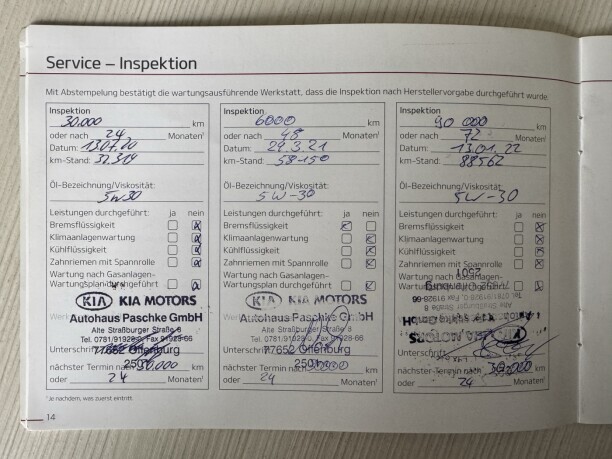 Service – Inspektion
Mit Abstempelung bestätigt die wartungsausführende Werkstatt, dass die Inspektion nach Herstellervorgabe durchgeführt wurde.
Inspektion
30.000 km
oder nach 24 Monaten¹
Datum: 13.07.20
km-Stand: 32.319
Öl-Bezeichnung/Viskosität:
5W30
Leistungen durchgeführt: ja nein
Bremsflüssigkeit
Klimaanlagenwartung
Kühlflüssigkeit
Zahnriemen mit Spannrolle
Wartung nach Gasanlagen-
Wartungsplan durchgeführt
KIA KIA MOTORS
Autohaus Paschke GmbH
Alte Straßburger Straße 8
Tel. 0781/91928-0 Fax 91928-66
Unterschrift 77652 Offenburg
2501
nächster Termin nach 30.000 km
oder 24 Monaten¹
Inspektion
6000 km
oder nach 48 Monaten¹
Datum: 29.3.21
km-Stand: 58-150
Öl-Bezeichnung/Viskosität:
5W-30
Leistungen durchgeführt: ja nein
Bremsflüssigkeit
Klimaanlagenwartung
Kühlflüssigkeit
Zahnriemen mit Spannrolle
Wartung nach Gasanlagen-
Wartungsplan durchgeführt
KIA KIA MOTORS
Autohaus Paschke GmbH
Alte Straßburger Straße 8
Tel. 0781/91928-0 Fax 91928-66
Unterschrift 77652 Offenburg
2501
nächster Termin nach km
oder 24 Monaten¹
Inspektion
90 000 km
oder nach 72 Monaten¹
Datum: 13.01.22
km-Stand: 88562
Öl-Bezeichnung/Viskosität:
5W-30
Leistungen durchgeführt: ja nein
Bremsflüssigkeit
Klimaanlagenwartung
Kühlflüssigkeit
Zahnriemen mit Spannrolle
Wartung nach Gasanlagen-
Wartungsplan durchgeführt
2501
77652 Offenburg
KIA MOTORS
Unterschrift
nächster Termin nach km
oder 24 Monaten¹
¹Je nachdem, was zuerst eintritt.
14